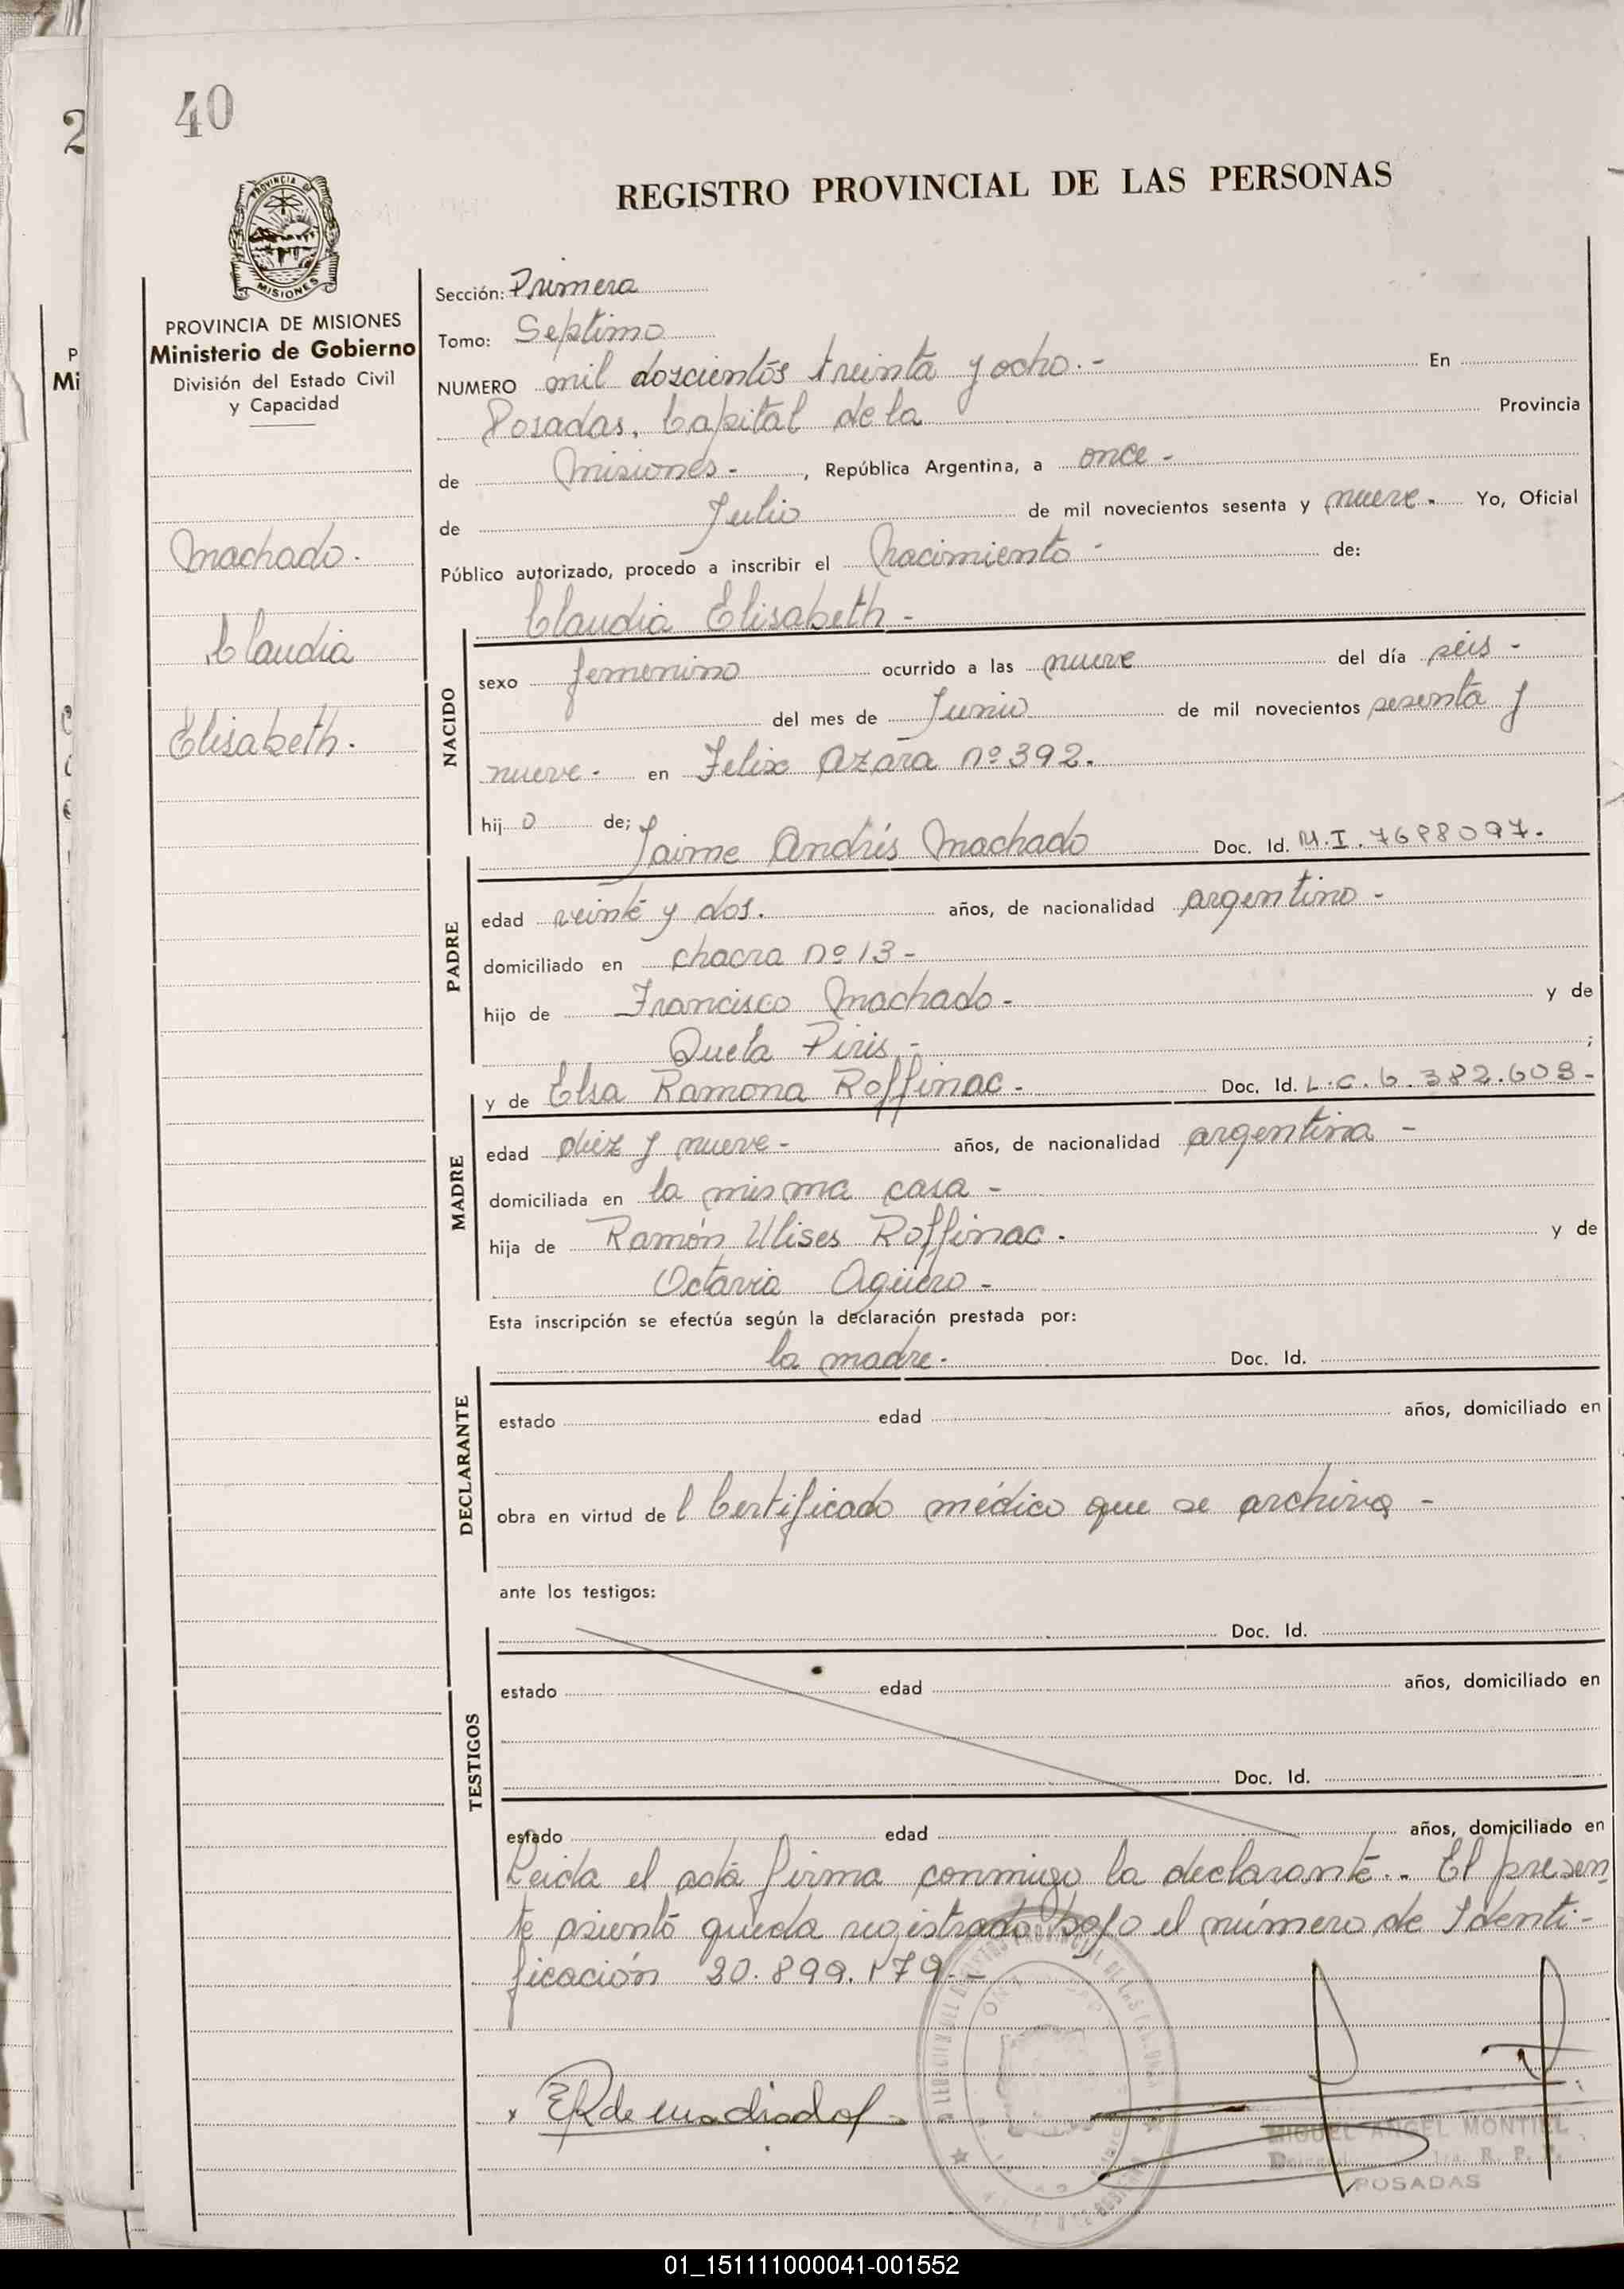 40
REGISTRO PROVINCIAL DE LAS PERSONAS
PROVINCIA DE MISIONES
Ministerio de Gobierno
División del Estado Civil
y Capacidad
Machado.
Claudia
Elisabeth.
Sección: Primera
Tomo: Septimo
NUMERO mil doscientos treinta y ocho.- En
Posadas, Capital de la Provincia
de Misiones-, República Argentina, a once-
de Julio de mil novecientos sesenta y nueve. Yo, Oficial
Público autorizado, procedo a inscribir el Nacimiento- de:
Claudia Elisabeth-
NACIDO
sexo femenino ocurrido a las nueve del día seis-
del mes de Junio de mil novecientos sesenta y
nueve- en Felix Azara nº 392.
hijo de;
Jaime Andrés Machado Doc. Id. M.I. 7698097.
PADRE
edad veinte y dos. años, de nacionalidad argentino-
domiciliado en chacra nº 13-
hijo de Francisco Machado- y de
Queta Piris-;
y de Elsa Ramona Roffinac- Doc. Id. L.C. 6.382.603-
MADRE
edad diez y nueve- años, de nacionalidad argentina-
domiciliada en la misma casa-
hija de Ramón Ulises Roffinac. y de
Octavia Agüero-
Esta inscripción se efectúa según la declaración prestada por:
la madre. Doc. Id.
DECLARANTE
estado edad años, domiciliado en
obra en virtud del Certificado médico que se archiva-
ante los testigos:
Doc. Id.
TESTIGOS
estado edad años, domiciliado en
Doc. Id.
estado edad años, domiciliado en
Leida el acta firma conmigo la declarante.. El presen
te asiento queda registrado bajo el número de Identi-
ficación 20.899.179.-
MIGUEL ANGEL MONTIEL
R. P. P.
POSADAS
01_151111000041-001552